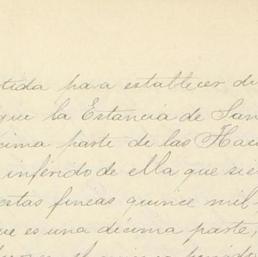 tida para establecer di
que la Estancia de San
cima parte de las Hac
inferido de ella que si
estas fincas quince mil
ue es una décima parte,